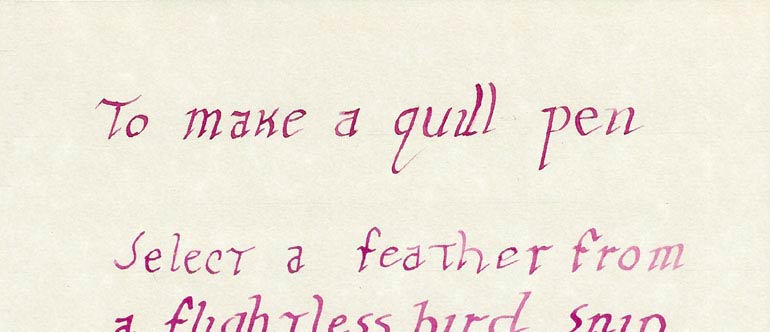 To make a quill pen
Select a feather from
a flightless bird snip